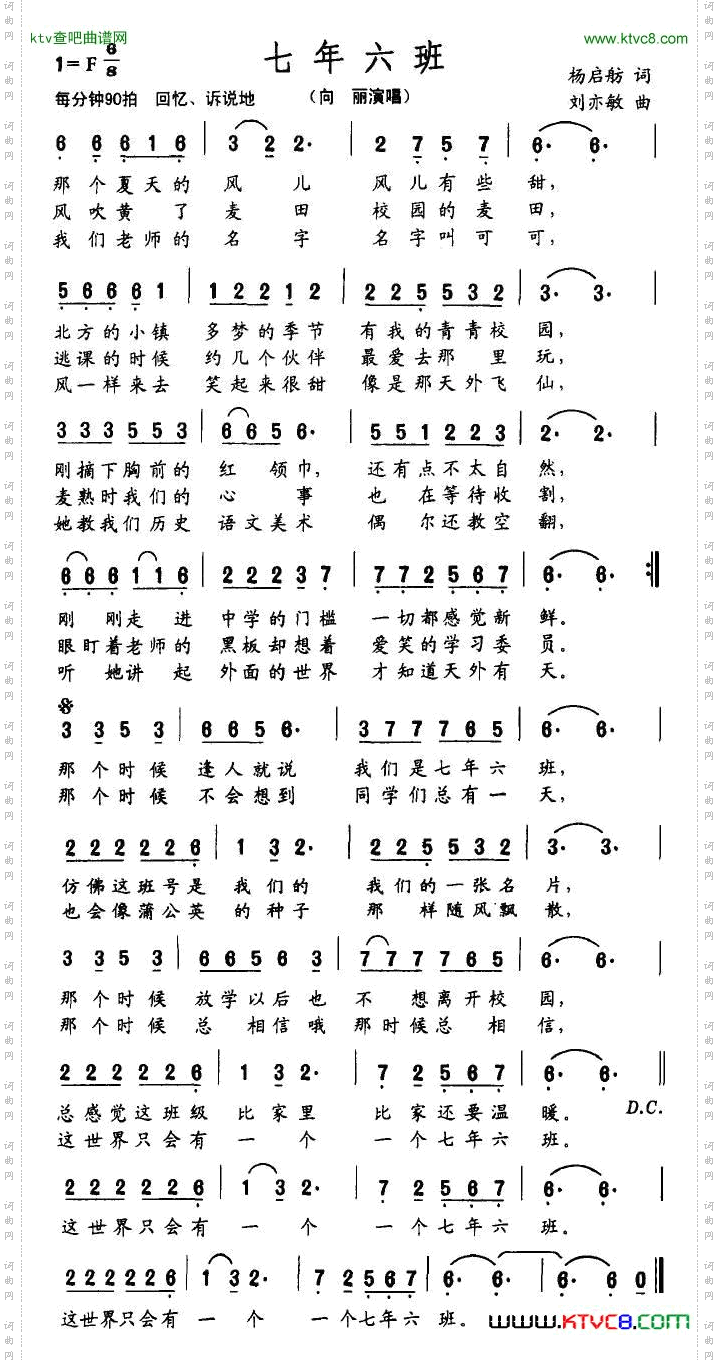 ktv查吧曲谱网
www.ktvc8.com
七年六班
1=F 6/8
杨启舫 词
每分钟90拍 回忆、诉说地 (向 丽演唱)
刘亦敏 曲
6 6 6 1 6 | 3 2 2· | 2 7 5 7 | 6· 6· |
那个夏天的 风 儿 风儿有些 甜,
风吹黄了 麦 田 校园的麦 田,
我们老师的 名 字 名字叫可 可,
5 6 6 6 6 1 | 1 2 2 2 1 2 | 2 2 5 5 3 2 | 3· 3· |
北方的小镇 多梦的季节 有我的青青校 园,
逃课的时候 约几个伙伴 最爱去那里 玩,
风一样来去 笑起来很甜 像是那天外飞 仙,
3 3 3 5 5 3 | 6 6 5 6· | 5 5 1 2 2 3 | 2· 2· |
刚摘下胸前的 红 领巾, 还有点不太自 然,
麦熟时我们的 心 事 也在等待收 割,
她教我们历史 语文美术 偶尔还教空 翻,
6 6 6 1 1 6 | 2 2 2 3 7 | 7 7 2 5 6 7 | 6· 6· :‖
刚刚走进 中学的门槛 一切都感觉新 鲜。
眼盯着老师的 黑板却想着 爱笑的学习委 员。
听她讲起 外面的世界 才知道天外有 天。
3 3 5 3 | 6 6 5 6· | 3 7 7 7 6 5 | 6· 6· |
那个时候 逢人就说 我们是七年六 班,
那个时候 不会想到 同学们总有一 天,
2 2 2 2 2 6 | 1 3 2· | 2 2 5 5 3 2 | 3· 3· |
仿佛这班号是 我们的 我们的一张名 片,
也会像蒲公英 的种子 那样随风飘 散,
3 3 5 3 | 6 6 5 6 3 | 7 7 7 7 6 5 | 6· 6· |
那个时候 放学以后也 不想离开校 园,
那个时候 总相信哦 那时候总相 信,
2 2 2 2 2 6 | 1 3 2· | 7 2 5 6 7 | 6· 6· ‖
总感觉这班级 比家里 比家还要温 暖。 D.C.
这世界只会有 一个 一个七年六 班。
2 2 2 2 2 6 | 1 3 2· | 7 2 5 6 7 | 6· 6· |
这世界只会有 一个 一个七年六 班。
2 2 2 2 2 6 | 1 3 2· | 7 2 5 6 7 | 6· 6· | 6· 6 0 ‖
这世界只会有 一个 一个七年六 班。
www.KTVC8.com